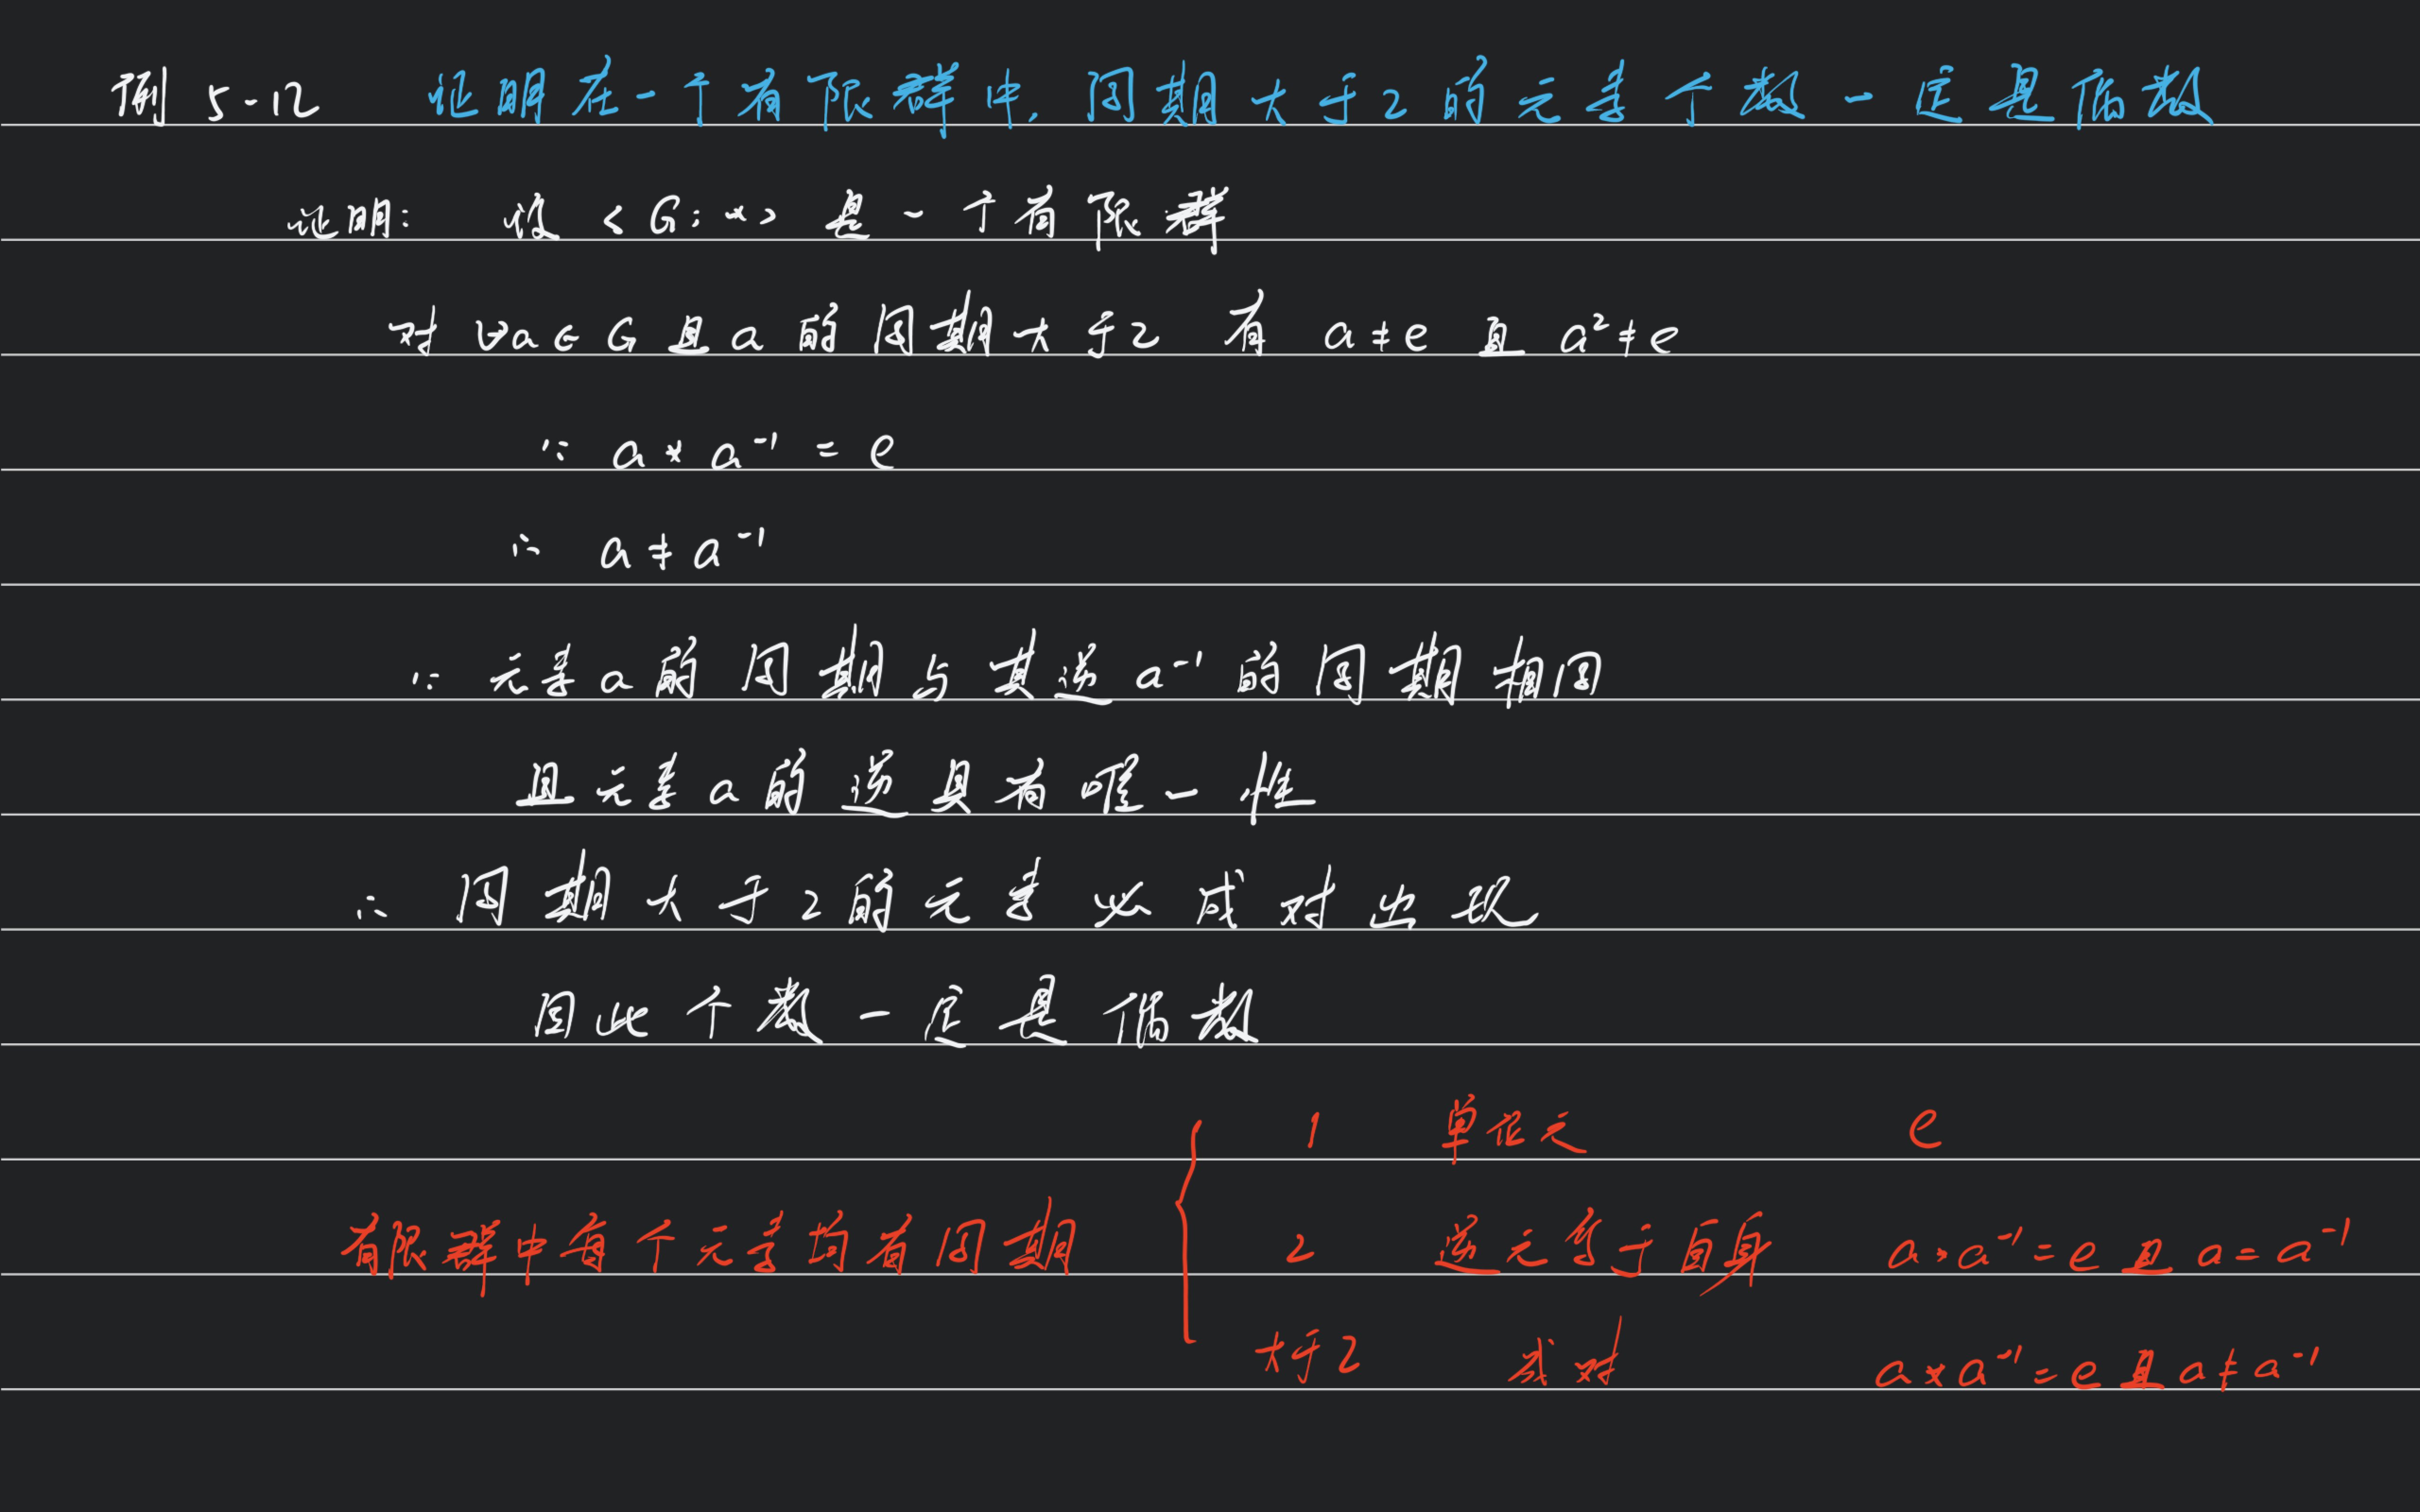 例 5-12 证明在一个有限群中,周期大于2的元素个数一定是偶数
证明: 设 <G;*> 是一个有限群
对 ∀a∈G 且 a 的周期大于2 有 a≠e 且 a²≠e
∵ a*a⁻¹=e
∴ a≠a⁻¹
∵ 元素a的周期与其逆a⁻¹的周期相同
且元素a的逆具有唯一性
∴ 周期大于2的元素必成对出现
因此个数一定是偶数
1 单位元 e
有限群中每个元素均有周期 2 逆元等于自身 a*a⁻¹=e且a=a⁻¹
大于2 成对 a*a⁻¹=e且a≠a⁻¹